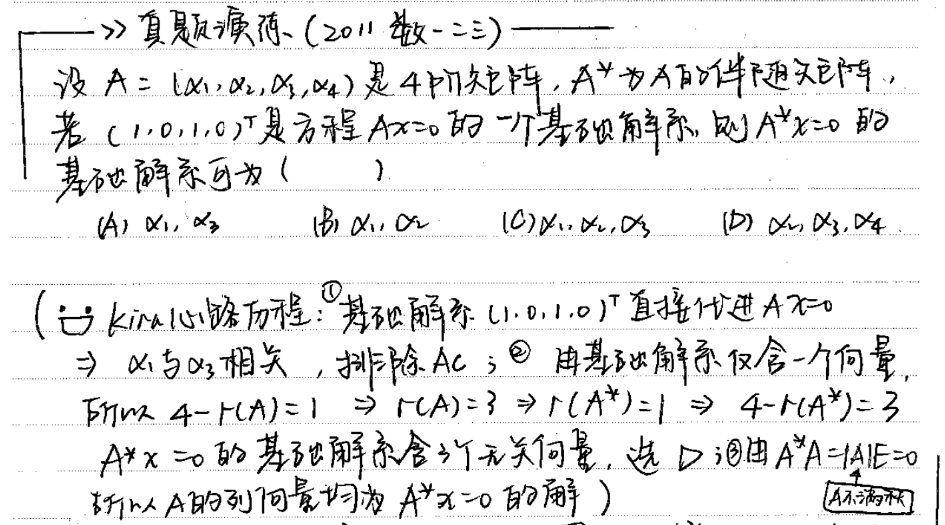 >> 真题演练、(2011 数一二三)
设 A = (α₁,α₂,α₃,α₄) 是4阶矩阵, A* 为A的伴随矩阵,
若 (1,0,1,0)ᵀ 是方程 Ax=0 的一个基础解系, 则 A*x=0 的
基础解系可为 ( )
(A) α₁, α₃ (B) α₁, α₂ (C) α₁, α₂, α₃ (D) α₂, α₃, α₄
( kira心路历程: ①基础解系 (1.0.1.0)ᵀ 直接代进 Ax=0
⇒ α₁与α₃相关 , 排除AC ; ② 由基础解系仅含一个向量,
所以 4-r(A)=1 ⇒ r(A)=3 ⇒ r(A*)=1 ⇒ 4-r(A*)=3
A*x=0 的基础解系含3个无关向量, 选 D ; ③由A*A=|A|E=0
所以A的列向量均为 A*x=0 的解 ) A不满秩